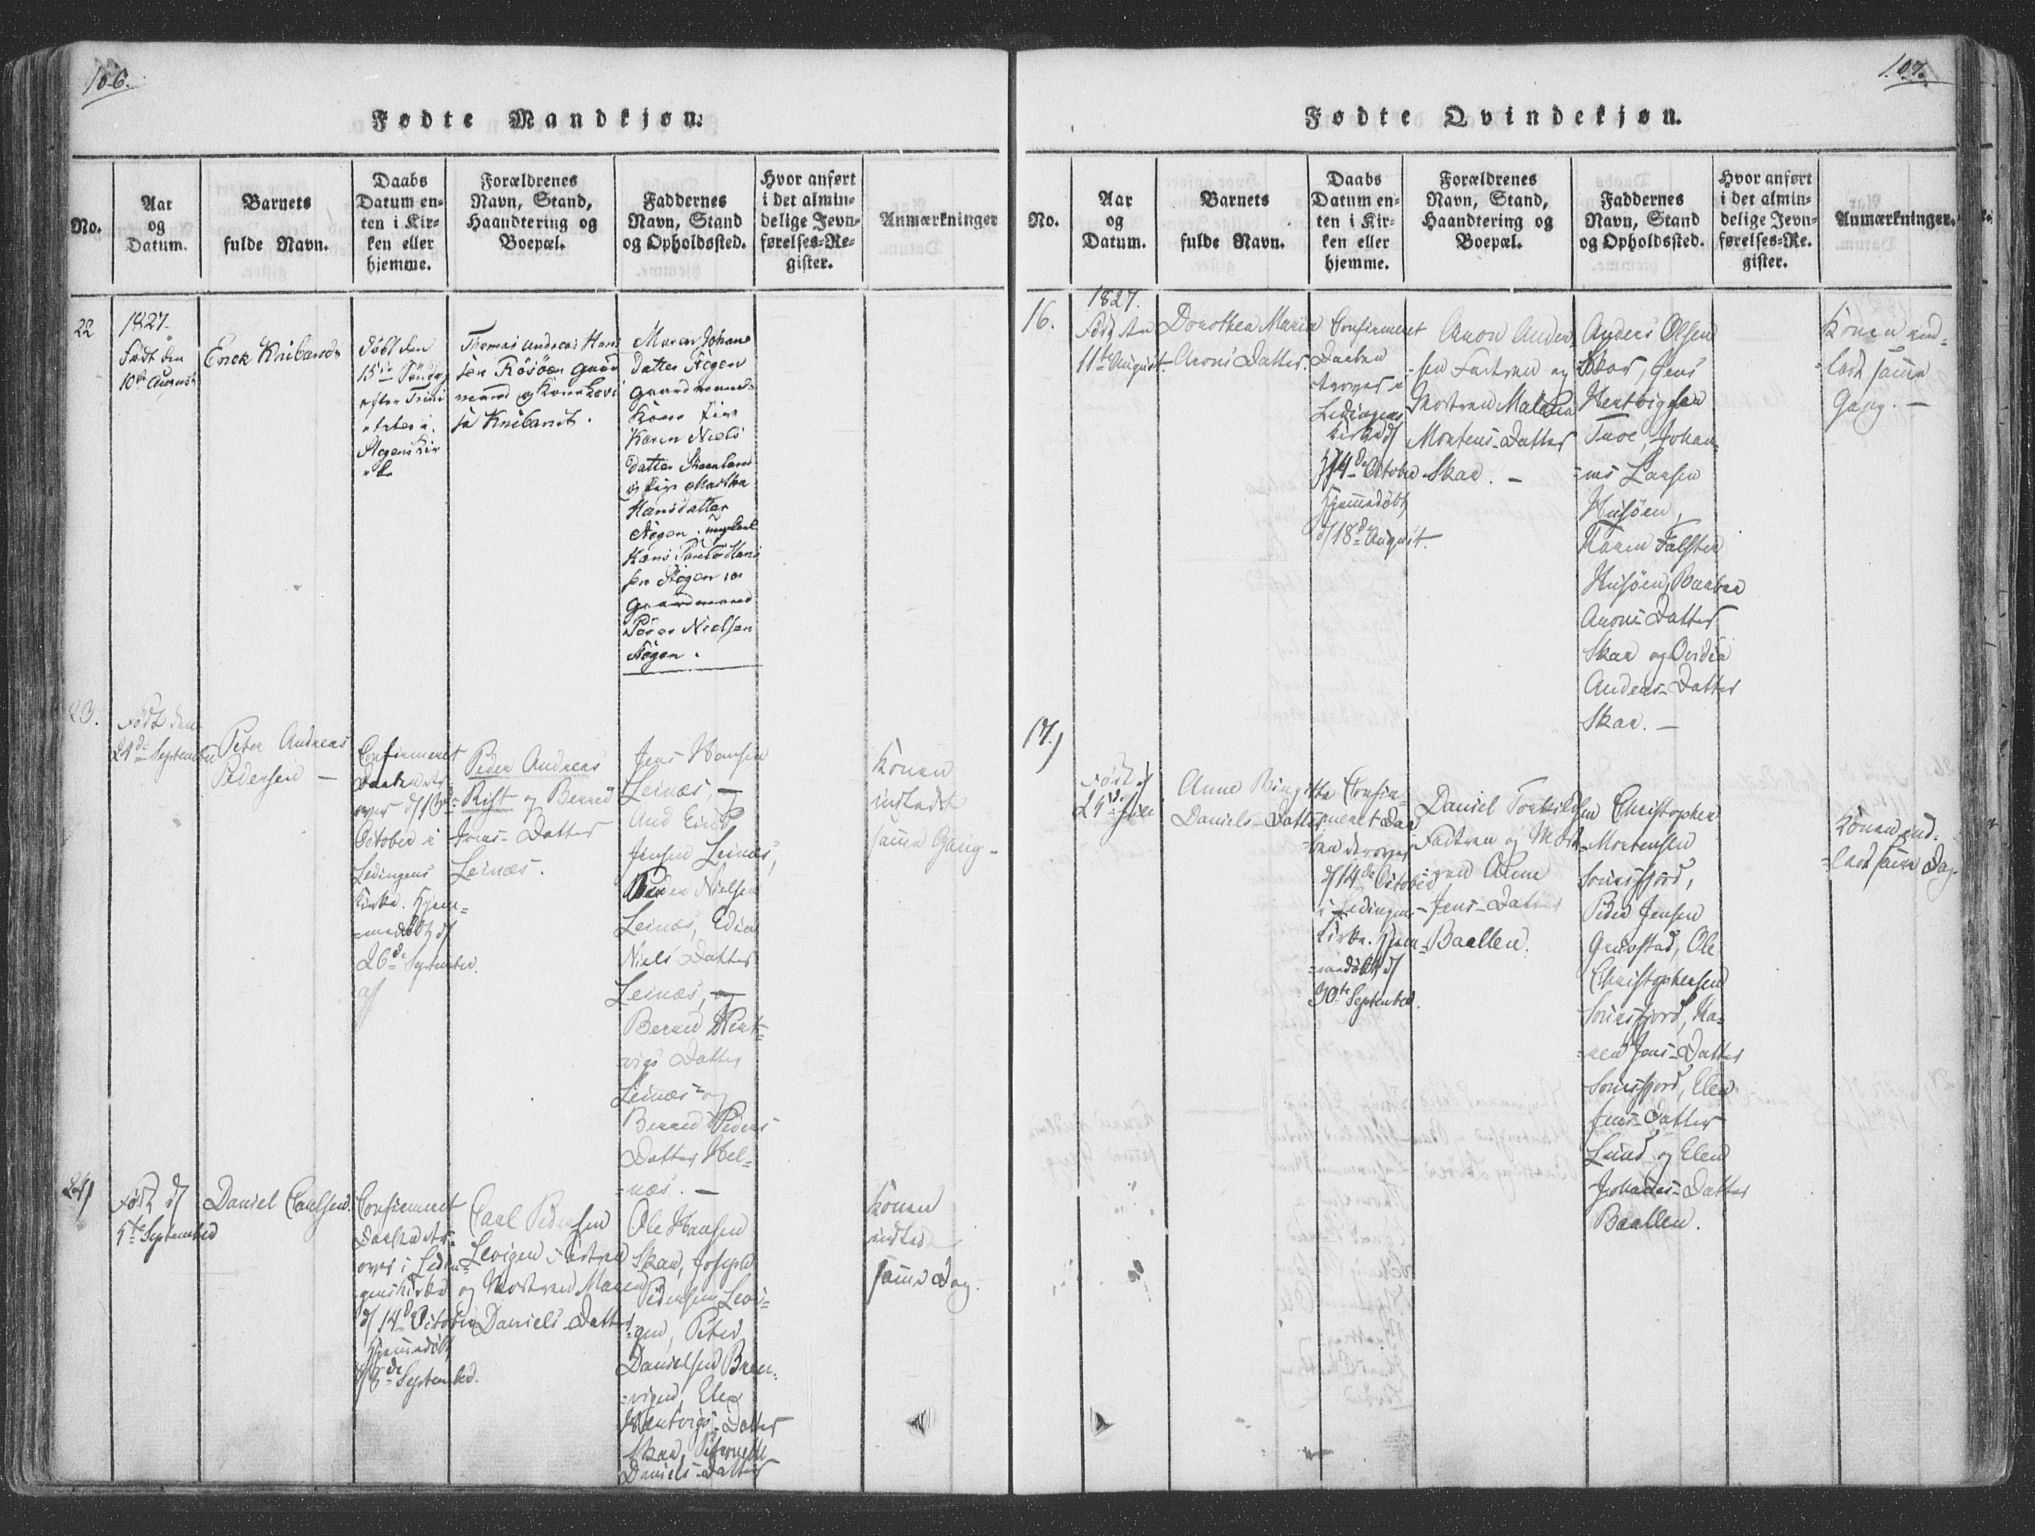 106.
Fødte Mandkjøn.
No.
Aar
og
Datum.
Barnets
fulde Navn.
Daabs
Datum en-
ten i Kir-
ken eller
hjemme.
Forældrenes
Navn, Stand,
Haandtering og
Boepæl.
Faddernes
Navn, Stand
og Opholdssted.
Hvor anført
i det almin-
delige Jevn-
førelses-Re-
gister.
Anmærkninger
22
1827.
Født den
10de August
Erick Knibandt
Døbt den
15de Sønda
efter Trini
tatis i
Stegens Kir
ke
Thomas Andreas Hans
sen Røsøen Gaard
mand og Kone Lovi
sa Knibandt.
Maren Johans
datter Stegen
gaardmands
Kone Pige
Karen Niels
datter
og Pige Martha
Hansdatter
Stegen
Hans
sen Stegen og
Gaardmand
Peder Nielsen
Stegen.
23.
Født den
24de September
Peter Andreas
Pedersen —
Confirmeret
Daaben
October i
Ledingens
Kirke. Hjem-
medøbt d/
26de September.
Peder Andreas
Rist og Berred
Jens- Datter
Leinæs.
Jens Hansen
Leinæs, —
And Erick
Jensen Leinæs,
Peder Nielsen
Leinæs,
Niels Datter
Leinæs, og
Berred Hent-
vigs Datter
Leinæs- og
Berred Peders
Datter Hel-
næs. —
Konen
indledt
samme Gang -
24)
Født d/
5te September
Daniel Carlsen.
Confirmeret
Daabens
i Ledin-
gens Kirke
d/14de October
Hjemmedøbt
d/8de September.
Carl Pedersen
Levigen Fadren
og Modren Maren
Daniels-Datter
Ole Hansen
Skar, Joseph
Pedersen Levi-
gen, Peter
Danielsen Bren-
vigen, Elen
Hentvigs-Datter
Skar, Pernelle
Daniels-Datter
Konen
indled
samme Dag.
107.
Fødte Qvindekjøn.
No.
Aar
og
Datum.
Barnets
fulde Navn.
Daabs
Datum en-
ten i Kir-
ken eller
hjemme.
Forældrenes
Navn, Stand,
Haandtering og
Boepæl.
Faddernes
Navn, Stand
og Opholdssted.
Hvor anført
i det almin-
delige Jevn-
førelses-Re-
gister.
Anmærkninger.
16.
1827.
Født den
11te August.
Dorothea Maria
Arons Datter.
Confirmeret
Daaben
i
Ledingens
Kirke d/
14de October
Hjemmedøbt
d/18de August.
Aron Ander-
sen Fadren og
Modren Malena
Mortens-Datter
Skar. —
Anders Olsen
Skar, Jens
Hentvigsen
Johan-
nes Larsen
Husøen,
Karen Falster
Husøen, Barbra
Arons-Datter
Skar og Ovidia
Anders-Datter
Skar. —
Konen ind-
ledt samme
Gang. —
17.)
Født d/
24de
Anne Birgitta
Daniels-Datter
Confir-
meret Daa-
ben
d/14de October
i Ledingens
Kirke. Hjem-
medøbt d/
30te September.
Daniel Torkildsen
Fadren og Mod-
ren Anne
Jens-Datter
Baallen.
Christopher
Mortensen
Sørisfjord,
Peder Jensen
Grovstad, Ole
Christophersen
Sørisfjord, Ka-
ren Jens-Datter
Sørisfjord, Elen
Jens-Datter
Lund og Elen
Johanes-Datter
Baallen.
Konen ind-
ledt samme Dag.